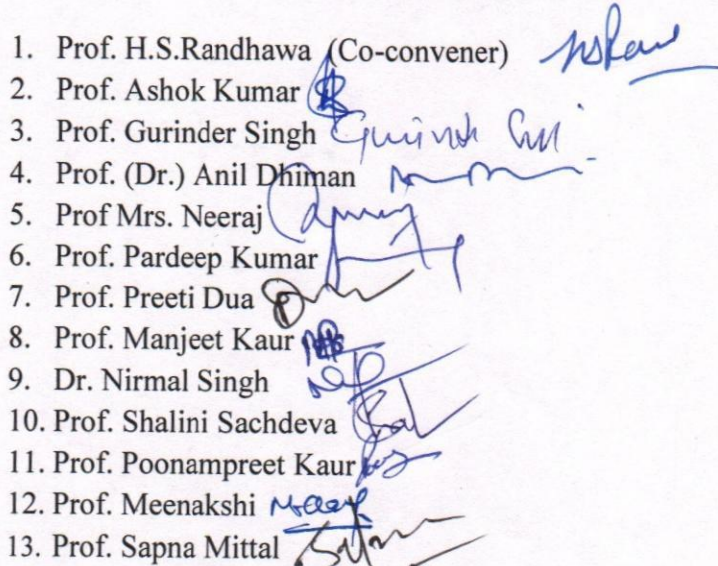 1. Prof. H.S.Randhawa (Co-convener)
2. Prof. Ashok Kumar
3. Prof. Gurinder Singh
4. Prof. (Dr.) Anil Dhiman
5. Prof Mrs. Neeraj
6. Prof. Pardeep Kumar
7. Prof. Preeti Dua
8. Prof. Manjeet Kaur
9. Dr. Nirmal Singh
10. Prof. Shalini Sachdeva
11. Prof. Poonampreet Kaur
12. Prof. Meenakshi
13. Prof. Sapna Mittal